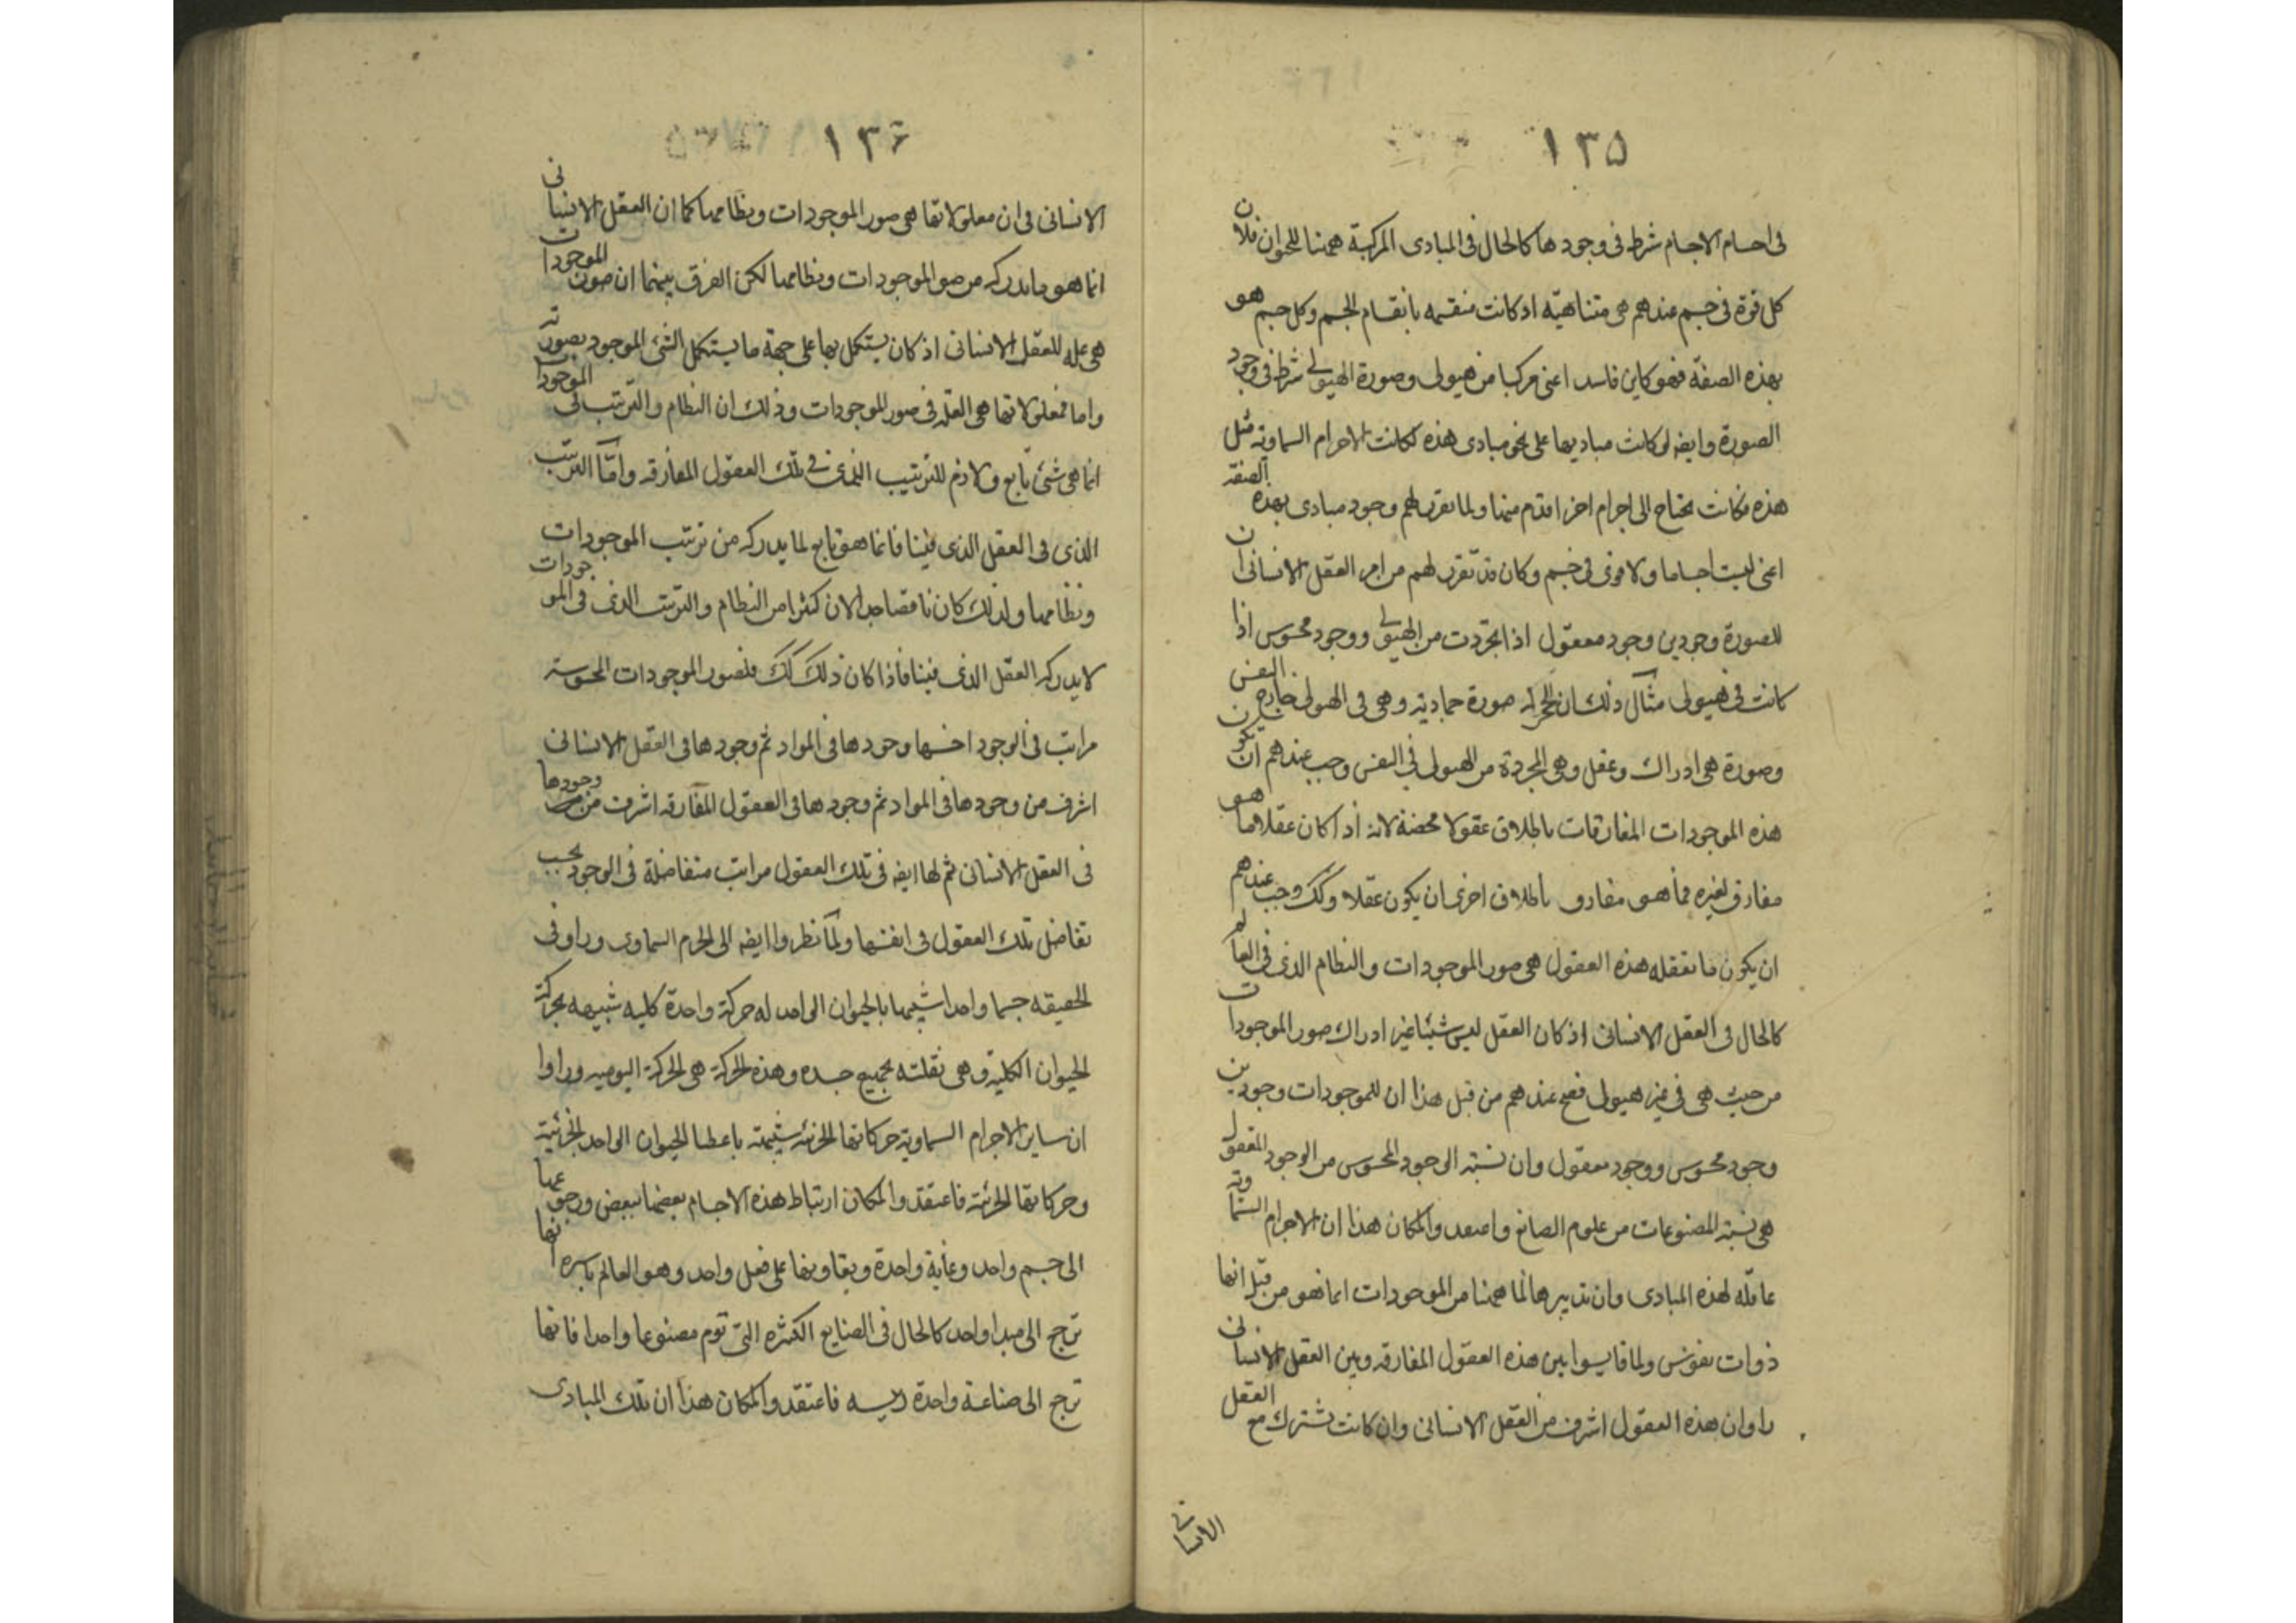 ١٣۵
فى اجسام الاجسام شرط فى وجودها كالحال فى المبادى المركبة ههنا للحيوان فلان
كل قوة فى جسم عندهم هى متناهيه اذ كانت منقسمه بانقسام الجسم وكل جسم هو
بهذه الصفة فهو كاين فاسد اعنى مركبا من هيولى وصورة الهيولى شرط فى وجود
الصورة وايضه لو كانت مباديها على نحو مبادى هذه لكانت الاجرام السماويه مثل
هذه فكانت تحتاج الى اجرام اخر اقدم منها ولما تقرر لهم وجود مبادى بهذه الصفة
اعنى ليست اجساما ولا قوى فى جسم وكان قد تقرر لهم من امر العقل الانسانى ان
للصورة وجودين وجود معقول اذا تجردت من الهيولى ووجود محسوس اذا
كانت فى هيولى مثال ذلك ان الحجر له صورة جماديه وهى فى الهيولى خارج النفس
وصورة هى ادراك وعقل وهى المجردة من الهيولى فى النفس وجب عندهم ان يكون
هذه الموجودات المفارقات باطلاق عقولا محضة لانه اذا كان عقلا ما هو
مفارق لغيره فما هو مفارق باطلاق احرى ان يكون عقلا وكك وجب عندهم
ان يكون ما تعقله هذه العقول هى صور الموجودات والنظام الذى فى العالم
كالحال فى العقل الانسانى اذ كان العقل ليس شيئا غير ادراك صور الموجودات
من حيث هى فى غير هيولى فصح عندهم من قبل هذا ان للموجودات وجودين
وجود محسوس ووجود معقول وان نسبة الوجود المحسوس من الوجود المعقول
هى نسبة المصنوعات من علوم الصانع واعتقدوا لمكان هذا ان الاجرام السماوية
عاقله لهذه المبادى وان تدبيرها لما ههنا من الموجودات انما هو من قبل انها
ذوات نفوس ولما قايسوا بين هذه العقول المفارقه وبين العقل الانسانى
راوا ان هذه العقول اشرف من العقل الانسانى وان كانت تشترك مع العقل
الانسانى
١٣۶
الانسانى فى ان معقولاتها هى صور الموجودات ونظامها كما ان العقل الانسانى
انما هو ما يدركه من صور الموجودات ونظامها لكن الفرق بينهما ان صور الموجودات
هى عله للعقل الانسانى اذ كان يستكمل بها على جهة ما يستكمل الشئ الموجود بصورته
واما معقولاتها هى العله فى صور الموجودات وذلك ان النظام والترتيب فى الموجودات
انما هى شئ تابع ولازم للترتيب الذى فى تلك العقول المفارقه وامّا الترتيب
الذى فى العقل الذى فينا فانما هو تابع لما يدركه من ترتيب الموجودات
ونظامها ولذلك كان ناقصا جدا لان كثيرا من النظام والترتيب الذى فى الموجودات
لا يدركه العقل الذى فينا فاذا كان ذلك كك فلصور الموجودات المحسوسة
مراتب فى الوجود اخسها وجودها فى المواد ثم وجودها فى العقل الانسانى
اشرف من وجودها فى المواد ثم وجودها فى العقول المفارقه اشرف من وجودها
فى العقل الانسانى ثم لها ايضه فى تلك العقول مراتب متفاضلة فى الوجود بحسب
تفاضل تلك العقول فى انفسها ولما نظروا ايضه الى الجرم السماوى وراوا فى
الحقيقه جسما واحدا شبيها بالحيوان الواحد له حركة واحدة كليه شبيهه بحركة
الحيوان الكلية وهى نقلته بجميع جسده وهذه الحركة هى الحركة اليوميه وراوا
ان ساير الاجرام السماوية حركاتها الجزئيه شبيهة باعضا الحيوان الواحد الجزئية
وحركاتها الجزئية فاعتقدوا لمكان ارتباط هذه الاجسام بعضها ببعض ورجوعها
الى جسم واحد وغاية واحدة وتعاونها على فعل واحد وهو العالم باسره انها
ترجع الى مبدا واحد كالحال فى الصنايع الكثيره التى تؤم مصنوعا واحدا فانها
ترجع الى صناعة واحدة رييسه فاعتقدوا لمكان هذا ان تلك المبادى